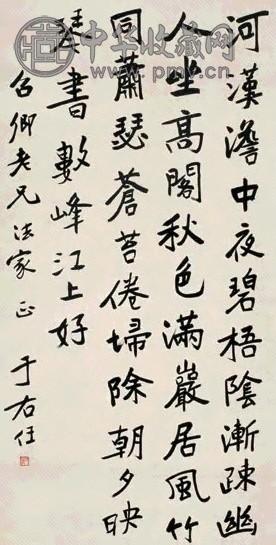 中华收藏网
www.pmv.cn
河漢澹中夜碧梧陰漸疎幽
人坐高閣秋色滿巖居風竹
同蕭瑟蒼苔倦埽除朝夕映
琴書數峰江上好
卿老兄法家正 于右任